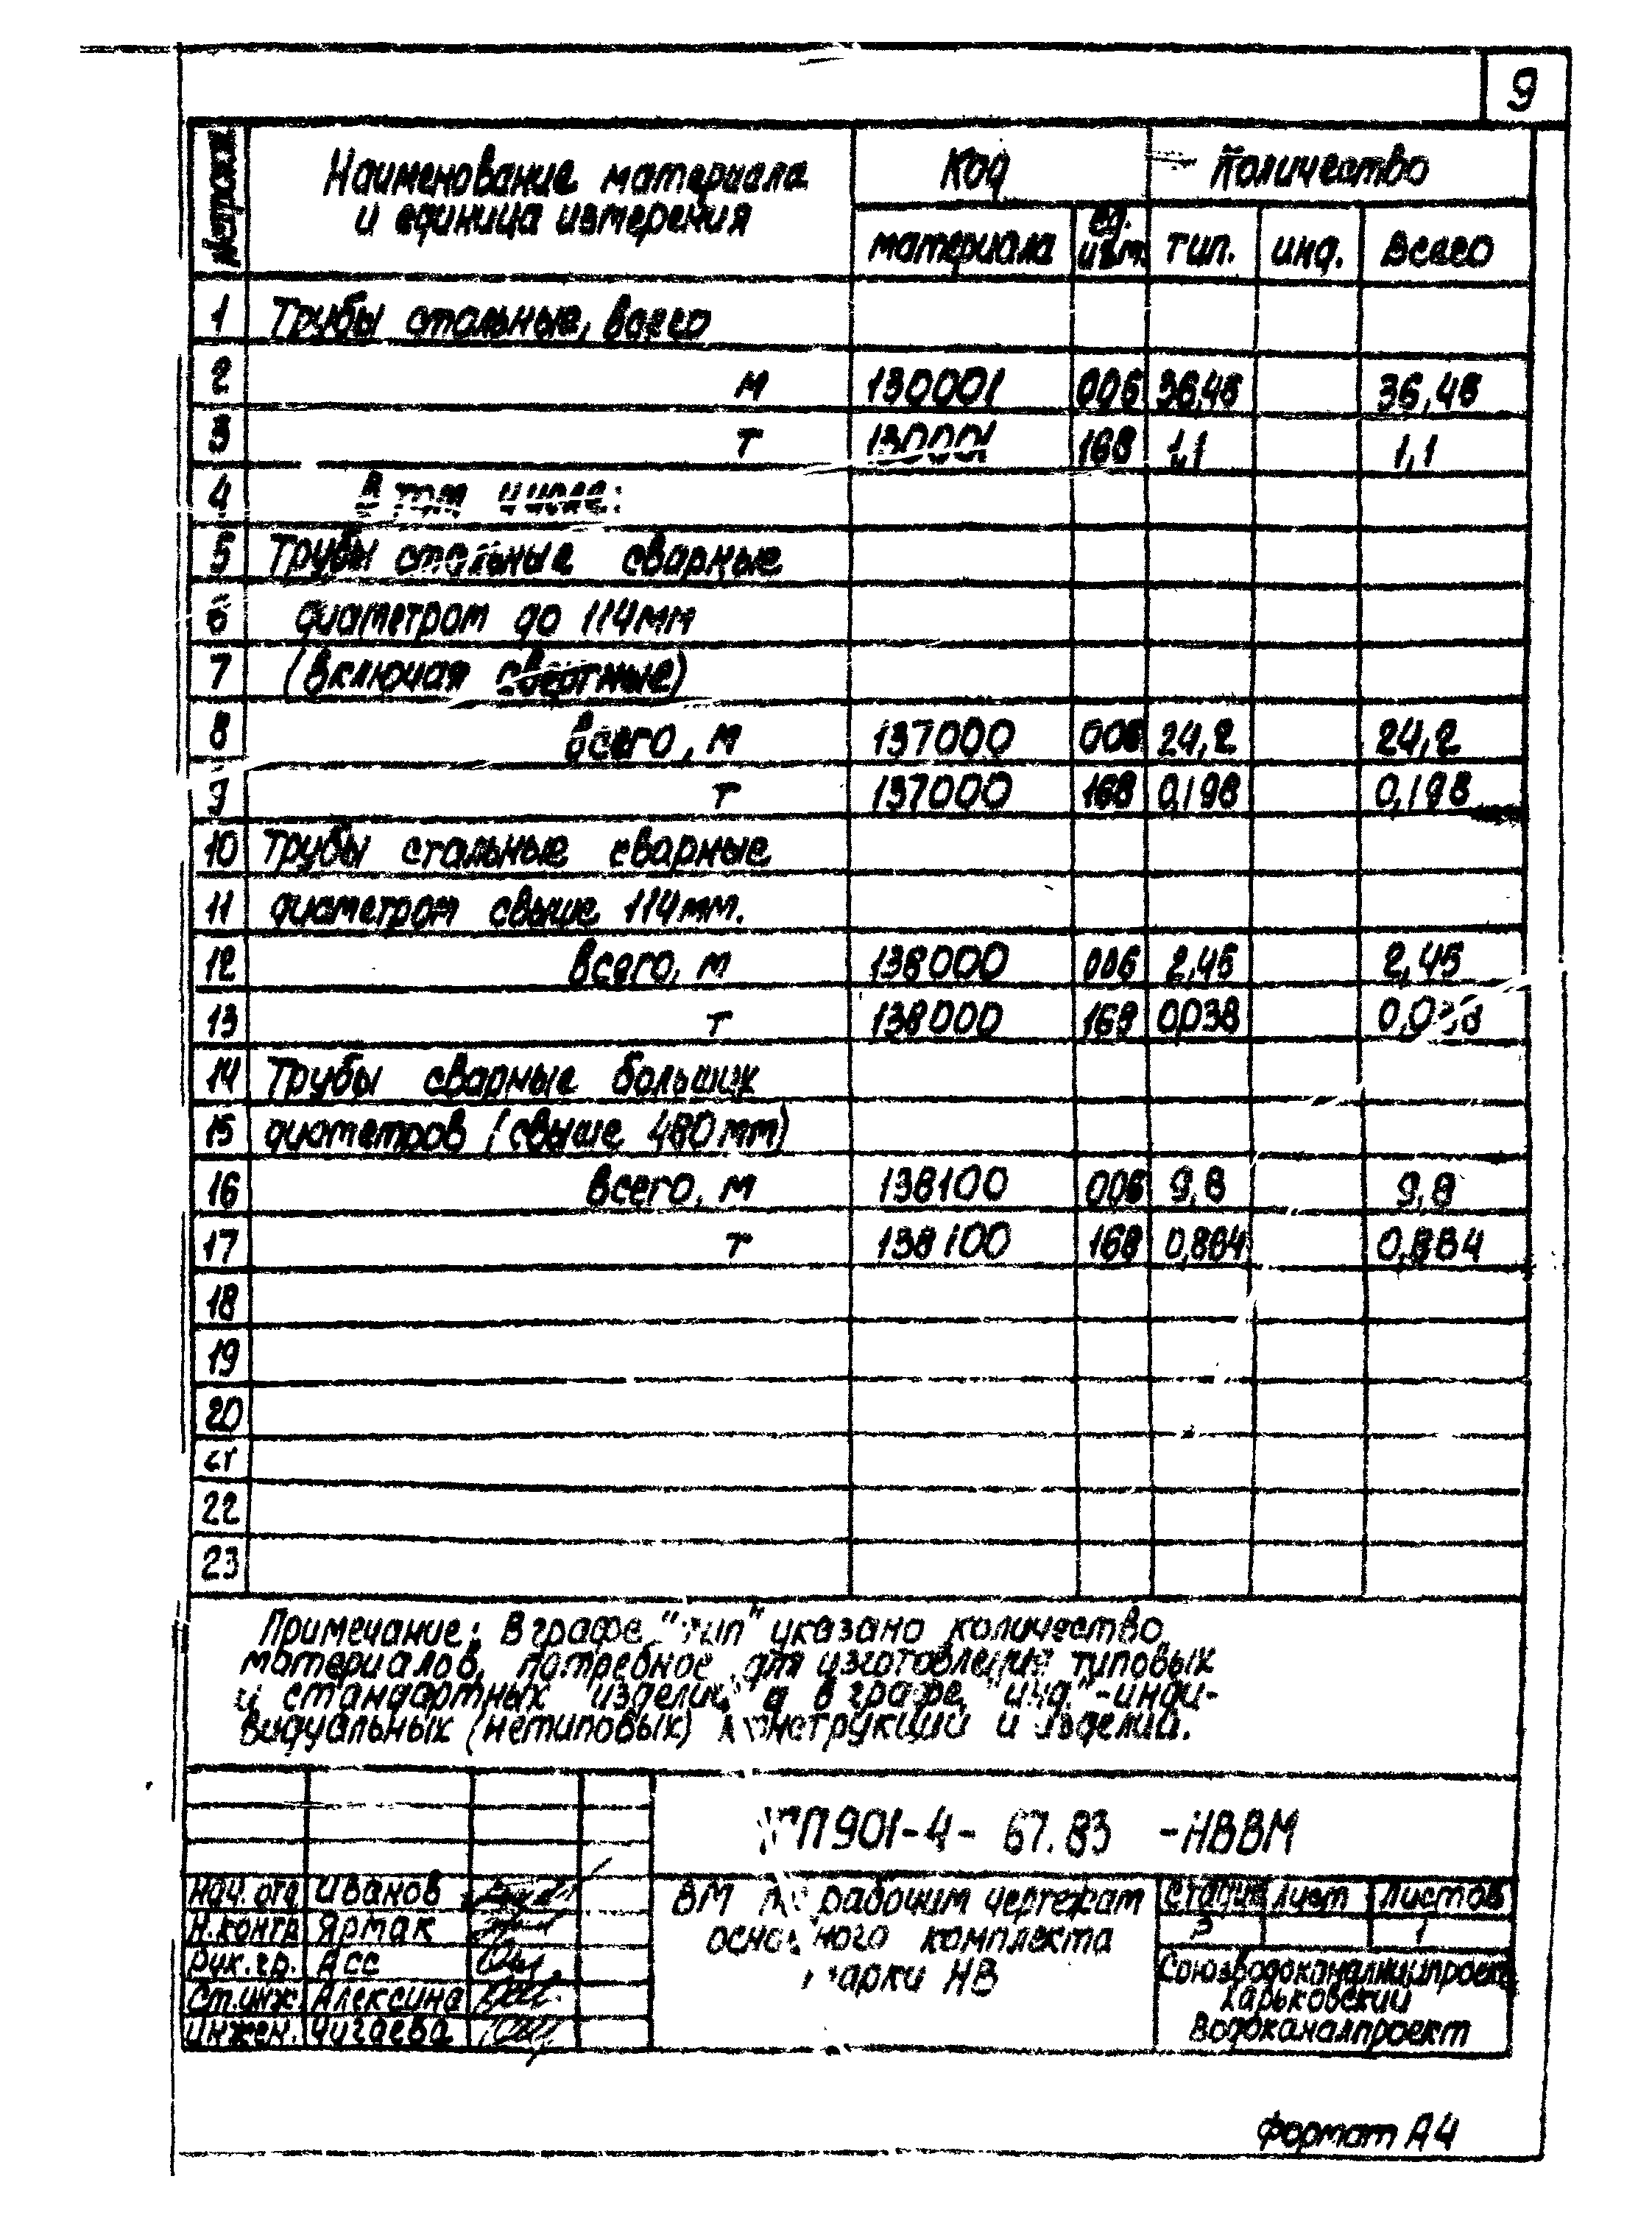 9
Наименование материала
и единица измерения
Код
Количество
материала
ед. изм.
тип.
инд.
Всего
1 Трубы стальные, всего
2 м 130001 006 36,45 36,45
3 т 130001 168 1,1 1,1
4 В том числе:
5 Трубы стальные сварные
6 диаметром до 114мм
7 (включая свертные)
8 всего, м 137000 006 24,2 24,2
9 т 137000 168 0,198 0,198
10 Трубы стальные сварные
11 диаметром свыше 114мм.
12 всего, м 138000 006 2,45 2,45
13 т 138000 168 0,038 0,038
14 Трубы сварные больших
15 диаметров (свыше 480мм)
16 всего, м 138100 006 9,8 9,8
17 т 138100 168 0,864 0,864
18
19
20
21
22
23
Примечание: В графе "тип" указано количество
материалов, потребное для изготовления типовых
и стандартных изделий, а в графе "инд."-инди-
видуальных (нетиповых) конструкций и изделий.
ТП901-4- 67.83 -НВВМ
Нач. отд Иванов
Н.контр Ярмак
Рук.гр. Асс
Ст.инж. Алексина
Инжен. Чигаева
ВМ по рабочим чертежам
основного комплекта
марки НВ
Стадия Лист Листов
Р 1
Союзводоканалниипроект
Харьковский
Водоканалпроект
Формат А4